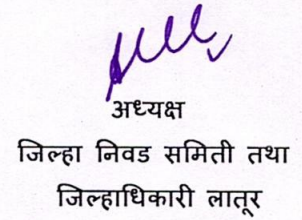 अध्यक्ष
जिल्हा निवड समिती तथा
जिल्हाधिकारी लातूर